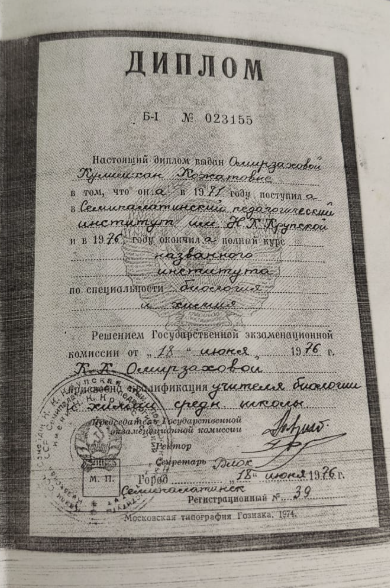 ДИПЛОМ
Б-I № 023155
Настоящий диплом выдан Омирзаховой
Кулишхан Кожатовне
в том, что он а в 1971 году поступил а
в Семипалатинский педагогический
институт им Н К Крупской
и в 1976 году окончил а полный курс
названного
института
по специальности биология
и химия
Решением Государственной экзаменационной
комиссии от „18" июня 1976 г.
К. К. Омирзаховой
присвоена квалификация учителя биологии
и химии средн школы
Председатель Государственной
экзаменационной комиссии
Ректор
Секретарь
М. П.
Город „18" июня 1976 г.
Семипалатинск
Регистрационный № 39
Московская типография Гознака. 1974.